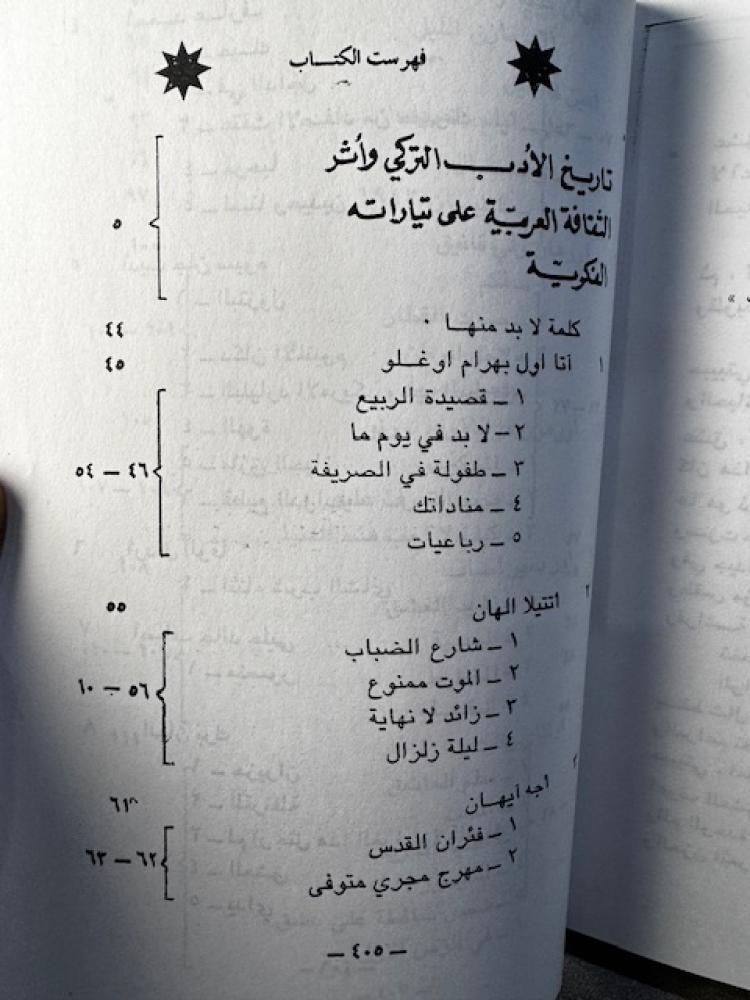 فهرست الكتاب
تاريخ الأدب التركي وأثر
الثقافة العربيّة على تياراته
الفكريّة
٥
كلمة لا بد منها ٠ ٤٤
١ آتا اول بهرام اوغلو ٤٥
١ ــ قصيدة الربيع
٢ــ لا بد في يوم ما
٣ ــ طفولة في الصريفة
٤ ــ مناداتك
٥ ــ رباعيات
٤٦ ــ ٥٤
٢ اتتيلا الهان ٥٥
١ ــ شارع الضباب
٢ ــ الموت ممنوع
٣ ــ زائد لا نهاية
٤ ــ ليلة زلزال
٥٦ ــ ٦٠
٣ أجه آيهان ٦١
١ ــ فئران القدس
٢ ــ مهرج مجري متوفى
٦٢ ــ ٦٣
ــ ٤٠٥ ــ